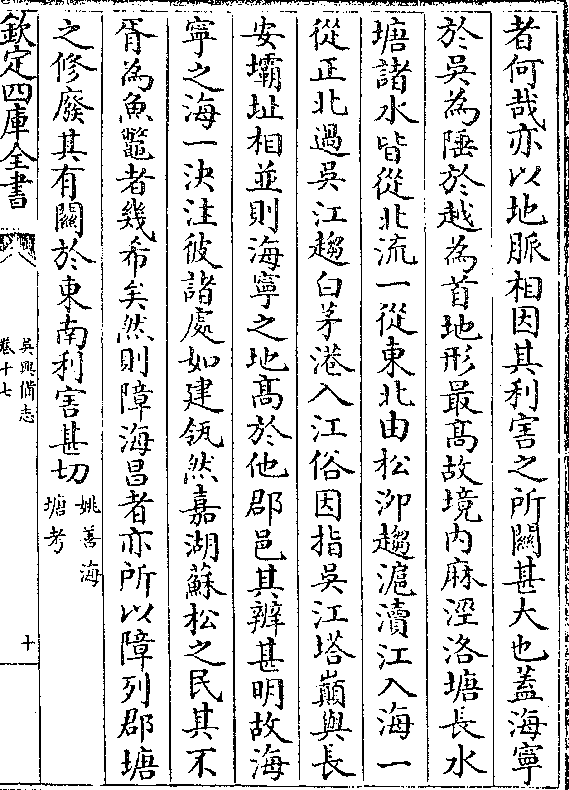 者何哉亦以地脈相因其利害之所關甚大也蓋海寧
於吳為陲於越為首地形最高故境内麻涇洛塘長水
塘諸水皆從北流一從東北由松泖趨滬瀆江入海一
從正北過吳江趨白茅港入江俗因指吳江塔巔與長
安壩址相並則海寧之地高於他郡邑其辨甚明故海
寧之海一決注彼諸處如建瓴然嘉湖蘇松之民其不
胥為魚鼈者幾希矣然則障海昌者亦所以障列郡塘
之修廢其有關於東南利害甚切
姚善海
塘考
欽定四庫全書
吳興備志
卷十七
十